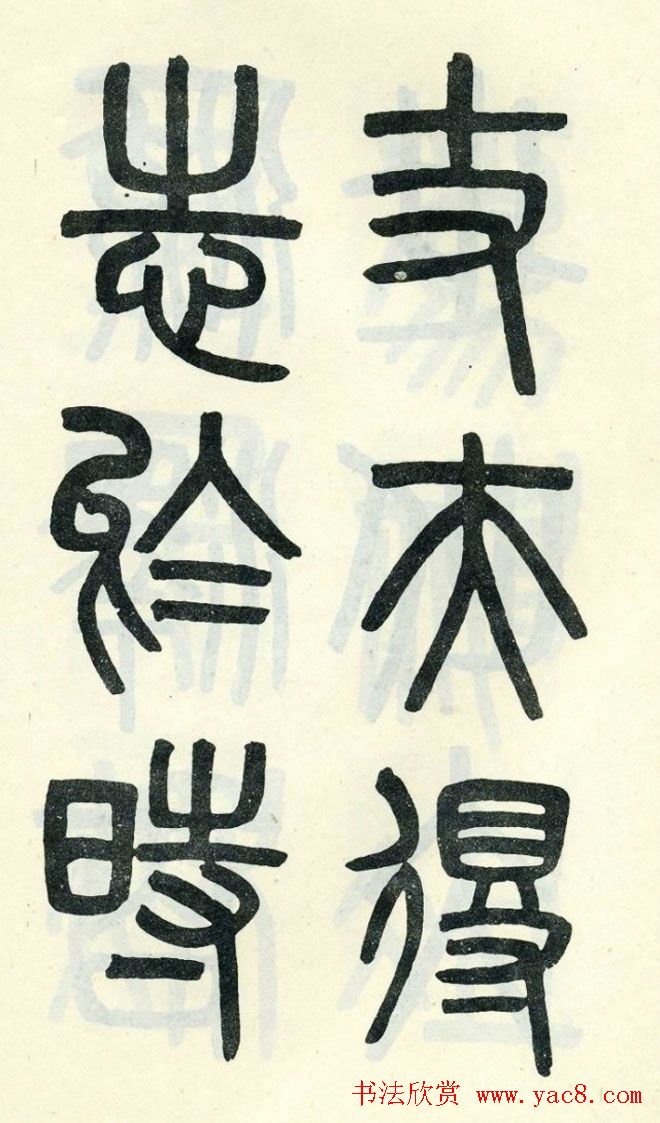 丈夫得
志於時
书法欣赏 www.yac8.com